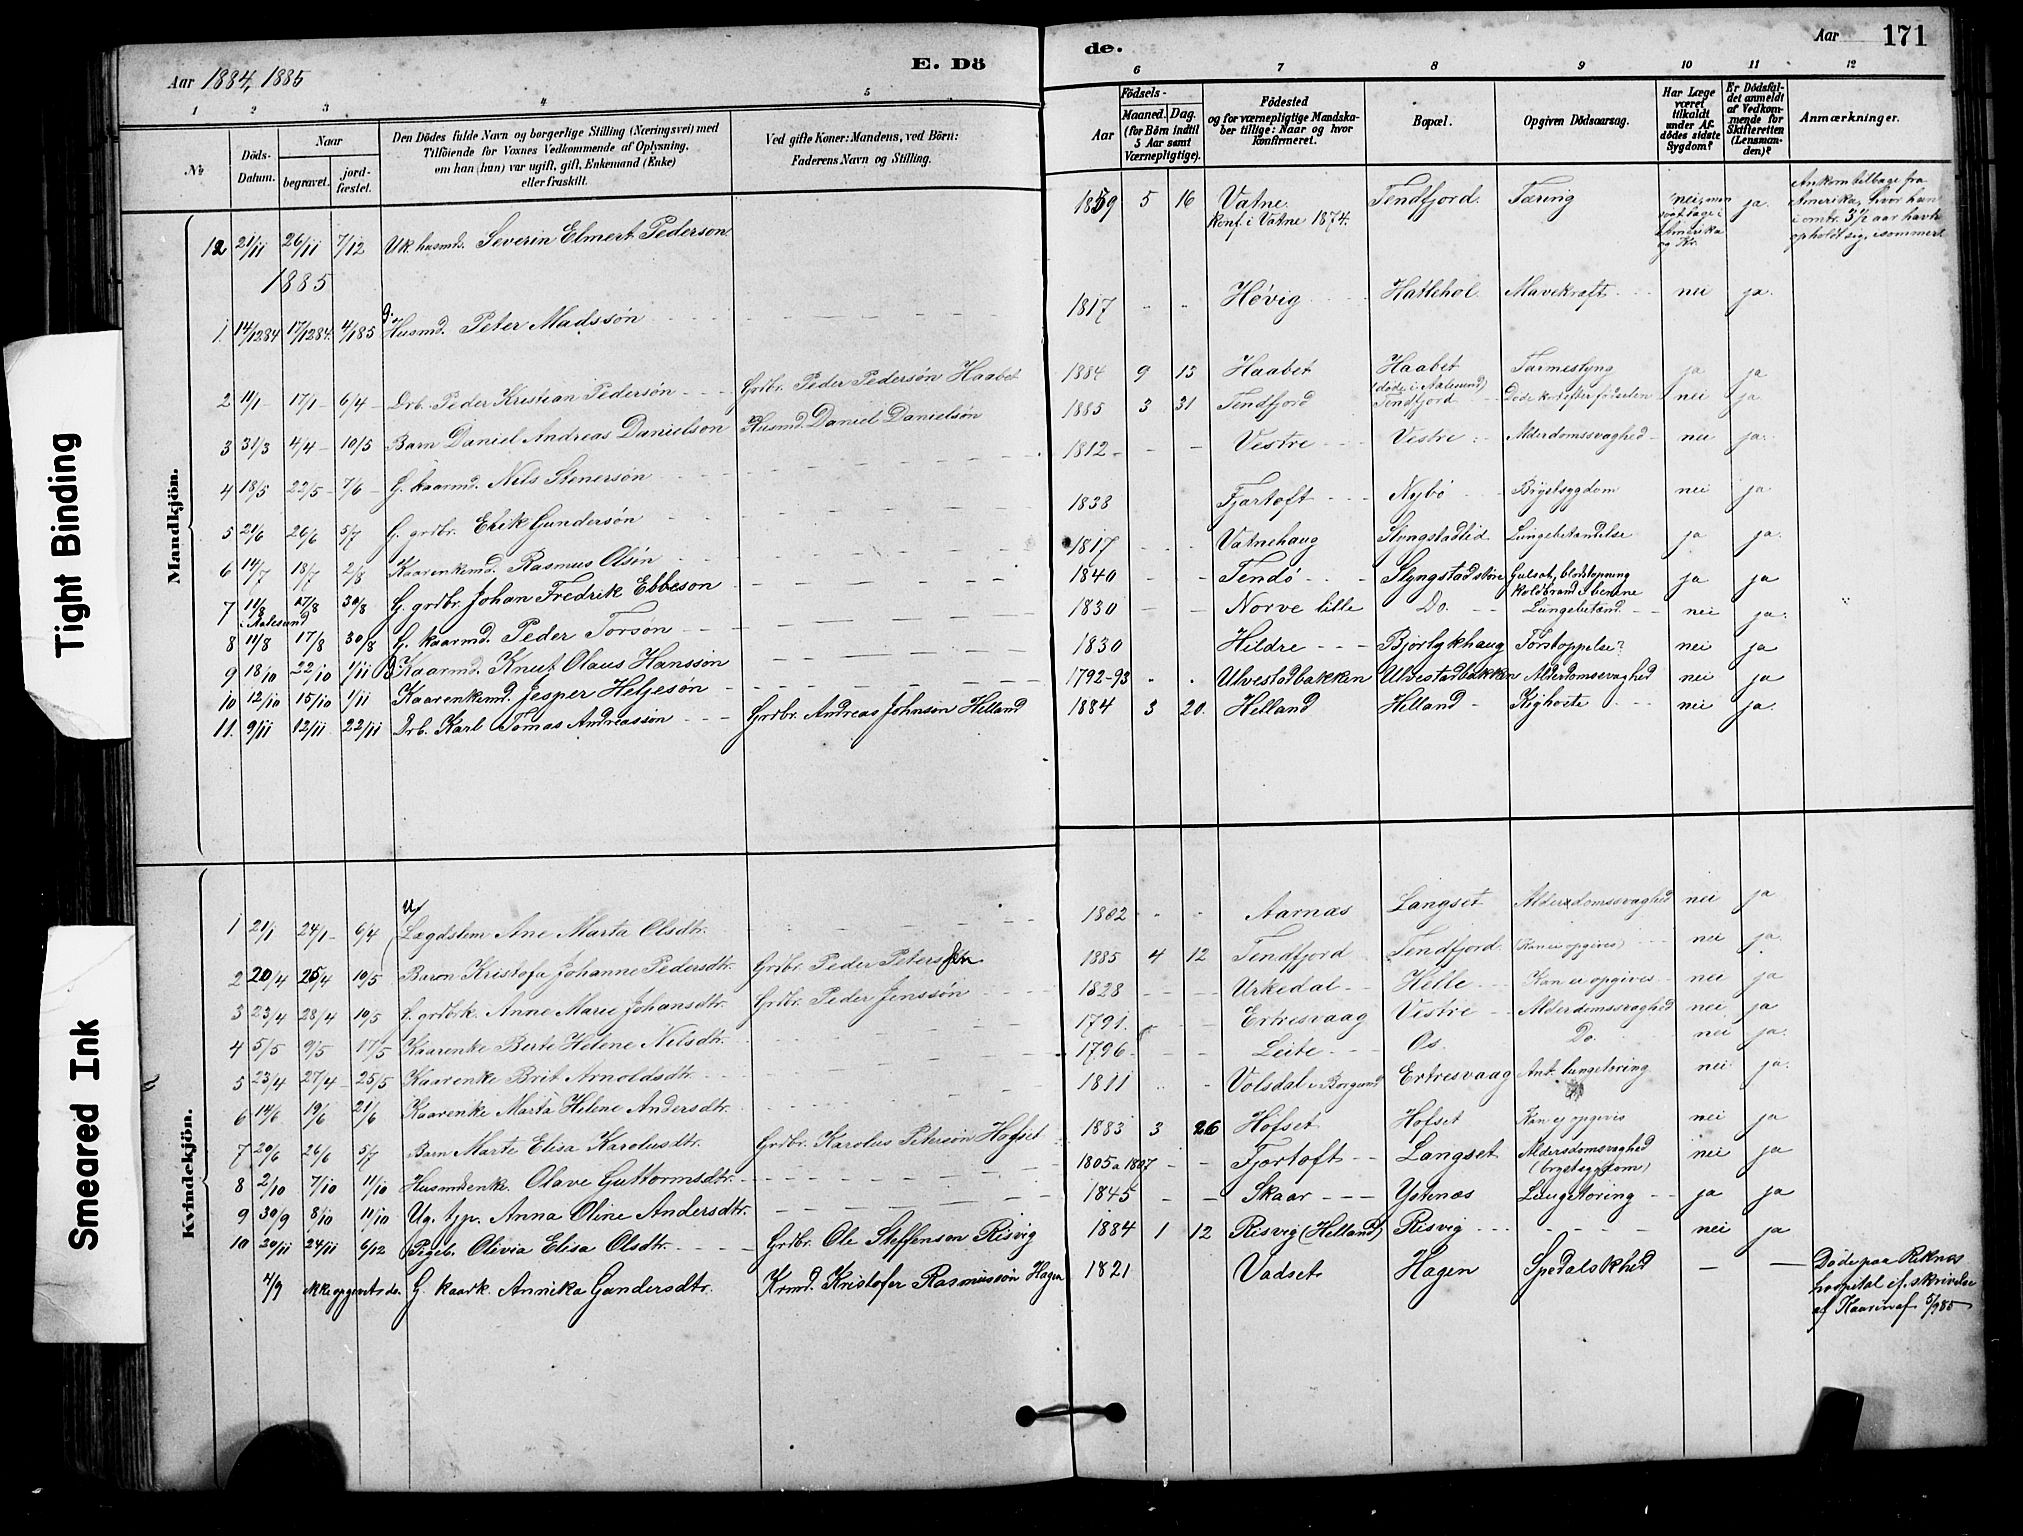 Tight Binding
Smeared Ink
Aar 1884, 1885
E. Dö
de.
Aar
171
1 2 3 4 5
6 7 8 9 10 11 12
№
Döds-Datum.
Naar
begravet.
jord-fæstet.
Den Dödes fulde Navn og borgerlige Stilling (Næringsvei) med
Tilföiende for Voxnes Vedkommende af Oplysning,
om han (hun) var ugift, gift, Enkemand (Enke)
eller fraskilt.
Ved gifte Koner: Mandens, ved Börn:
Faderens Navn og Stilling.
Födsels-
Aar
Maaned. Dag.
(for Börn indtil
5 Aar samt
Værnepligtige).
Födested
og for værnepligtige Mandska-
ber tillige: Naar og hvor
konfirmeret.
Bopæl.
Opgiven Dödsaarsag.
Har Læge
været
tilkaldt
under Af-
dödes sidste
Sygdom?
Er Dödsfal-
det anmeldt
af Vedkom-
mende for
Skifteretten
(Lensman-
den)?
Anmærkninger.
Mandkjön.
12 21/11 26/11 7/12 Uk husmd. Severin Elmert Pederson 1859 5 16 Vatne Tendfjord. Tæring nei, men ja.
konf. i Vatne 1874.
Amerika
og Kr.
Ankom tilbage fra
Amerika, hvor han
i omtr. 3½ aar havde
opholdt sig, isommer
1885
1. 14/12 84 17/12 84. 4/1 85 Husmd. Peter Madssön 1817 - - Hövig Hatlehol Mavekræft nei ja.
2 11/1 - 17/1 - 6/4 - Drb. Peder Kristian Pedersön Grdbr. Peder Pedersön Haabet 1884 9 15 Haabet Haabet Tarmeslyng ja ja
(döde i Aalesund)
3 31/3 4/4 - 10/5 Barn Daniel Andreas Danielson Husmd. Daniel Danielsön 1885 3 31 Tendfjord Tendfjord Döde kort efter födselen nei ja
4 18/5 22/5 - 7/6 - G. kaarmd. Nels Stenersön 1812 - - - Vestre Vestre Alderdomssvaghed - nei ja.
5 21/6 26/6 5/7 G. grdbr. Erik Gundersön 1838 Fjørtoft Nybö Brystsygdom nei ja.
6 14/7 18/7 2/8 Kaarenkemd. Rasmus Olsön 1817 - - Vatnehaug Slyngstadlid Lungebetændelse ja ja.
7 11/8 17/8 30/8 G. grdbr. Johan Fredrik Ebbeson 1840 - - Tendö Slyngstadstöre Gulsot, blodstopning ja ja
i Aalesund
koldbrand i benene
8 11/8 17/8 30/8 G. kaarmd. Peder Torsön 1830 - - Norve lille Do. Lungebetænd. nei ja.
9 18/10 22/10 1/11 Kaarmd. Knut Olaus Hanssön 1830 Hildre Bjorlykhaug Forstoppelse? nei ja
10 12/10 15/10 1/11 Kaarenkemd. Jesper Heljesön 1792-93 - - Ulvestadbakken Ulvestadbakken Alderdomssvaghed nei ja
11. 9/11 12/11 22/11 Drb. Karl Tomas Andreassön Grdbr. Andreas Johnson Helland 1884 3 20. Helland Helland Kighoste nei ja.
Kvindekjön.
U
1 21/1 24/1 - 6/4 Lægdslem Ane Marta Olsdtr. 1802 - - Aarnæs Langset Alderdomssvaghed nei ja
2 20/4 25/4 10/5 Baron Kristofa Johanne Pedersdtr. Grdbr. Peder Petersön 1885 4 12 Tendfjord Tendfjord. (Kan ei opgives) nei ja.
3 23/4 28/4 10/5 G. grdbrk. Anne Marie Johansdtr. Grdbr. Peder Jenssön 1828 - - Urkedal Helle Kan ei opgives nei ja
4 5/5 9/5 17/5 Kaarenke Berte Helene Nilsdtr. 1791. Ertresvaag Vestre Alderdomssvaghed nei ja
5 23/4 27/4 - 25/5 Kaarenke Brit Arnoldsdtr. 1796 - - Leite Os Do. nei ja.
6 14/6 19/6 21/6 Kaarenke Marta Helene Andersdtr. 1811 - - Volsdal i Borgund Ertresvaag Ant. lungetæring nei ja.
7 20/6 26/6 5/7 Barn Marte Elisa Karolusdtr. Grdbr. Karolus Petersön Hofset 1883 3 26 Hofset Hofset Kan ej opgives nei ja
8 2/10 7/10 11/10 Husmdsenke. Olave Guttormsdtr. 1805 a 1807 - - Fjørtoft Langset Aldersdomsvaghed nei ja
(brystsygdom)
9 30/9 8/10 11/10 Ug. tjp. Anna Oline Andersdtr. 1845 - - Skaar Ystenæs Lungetæring ja ja
10 20/11 24/11 6/12 Pigeb. Olivia Elisa Olsdtr. Grdbr. Ole Steffenson Risvig 1884 1 12 Risvig (Helland) Risvig - - - nei ja
4/9 ikke opgivet do. G. kaark. Annika Gundersdtr. Krmd. Kristofer Rasmussön Hagen 1821 Vadset Hagen Spedalskhed — —
Döde paa Reknæs
hospital cf. skrivelse
af Kaarmd af 5/9 85